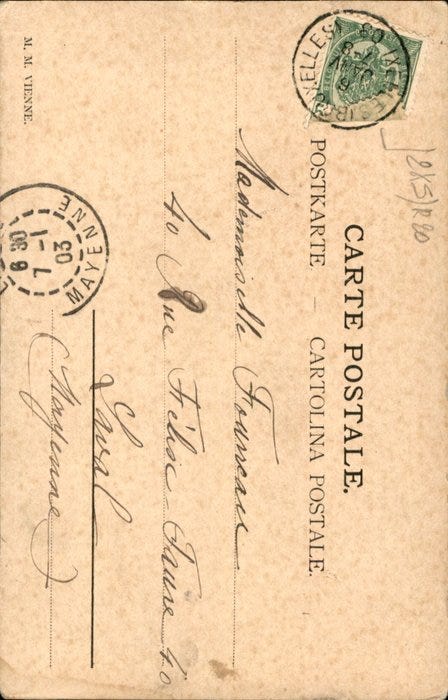 CARTE POSTALE.
POSTKARTE – CARTOLINA POSTALE.
Mademoiselle Fourneau
40 Rue Félix Faure 40
Laval
(Mayenne)
M. M. VIENNE.
MAYENNE
6 30
7 -1
03